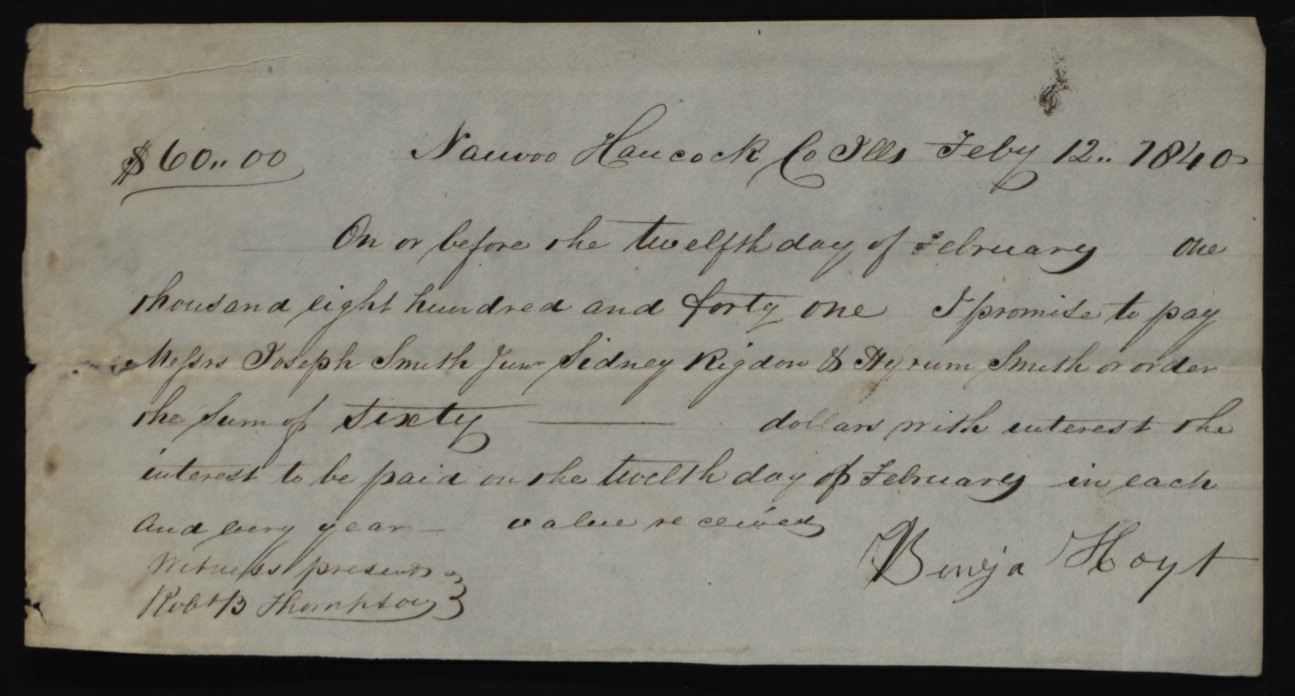 $60.. 00 Nauvoo Hancock Co Ills Feby 12.. 1840
On or before the twelfth day of February one
thousand eight hundred and forty one I promise to pay
Messrs Joseph Smith Junr Sidney Rigdon & Hyrum Smith or order
the Sum of sixty —— dollars with interest the
interest to be paid on the twelth day of February in each
and evry year — value received
Benja Hoyt
Witness present
Robt B Thompson